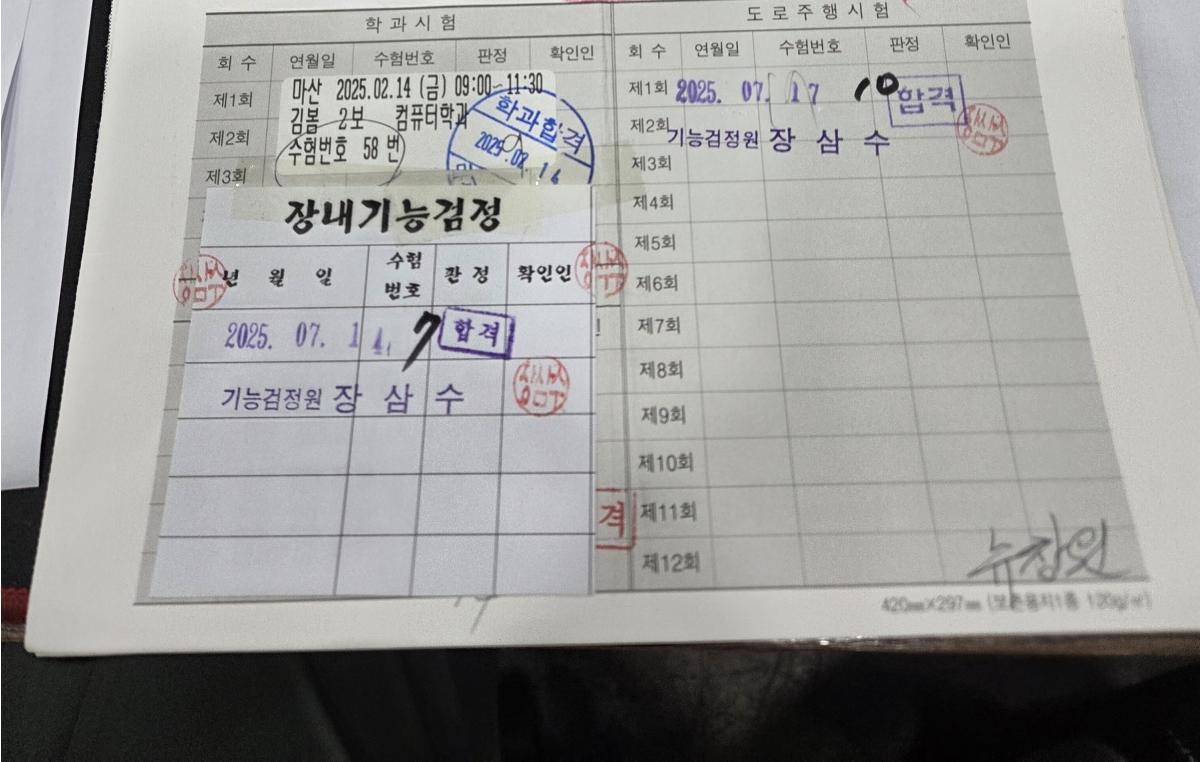 학과시험
회 수 연월일 수험번호 판정 확인인
제1회
제2회
제3회
마산 2025.02.14 (금) 09:00~11:30
김봄 2보 컴퓨터학과
수험번호 58 번
학과합격
장내기능검정
년 월 일 수험번호 판 정 확인인
2025. 07. 14. 7 합격
기능검정원 장 삼 수
도로주행시험
회 수 연월일 수험번호 판정 확인인
제1회 2025. 07. 17 10 합격
제2회 기능검정원 장 삼 수
제3회
제4회
제5회
제6회
제7회
제8회
제9회
제10회
격
제11회
제12회
뉴창원
420㎜×297㎜ (보존용지1종 120g/㎡)